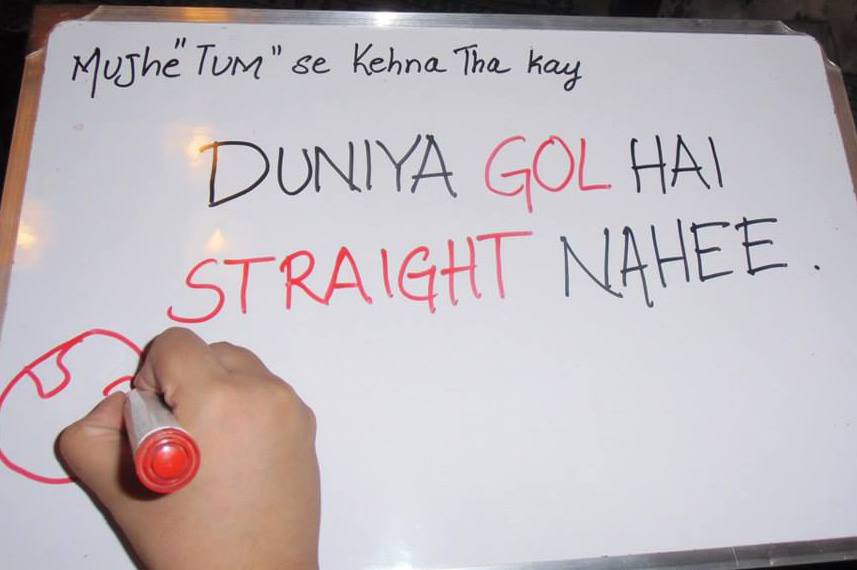 Mujhe "Tum" se Kehna Tha kay
DUNIYA GOL HAI
STRAIGHT NAHEE.